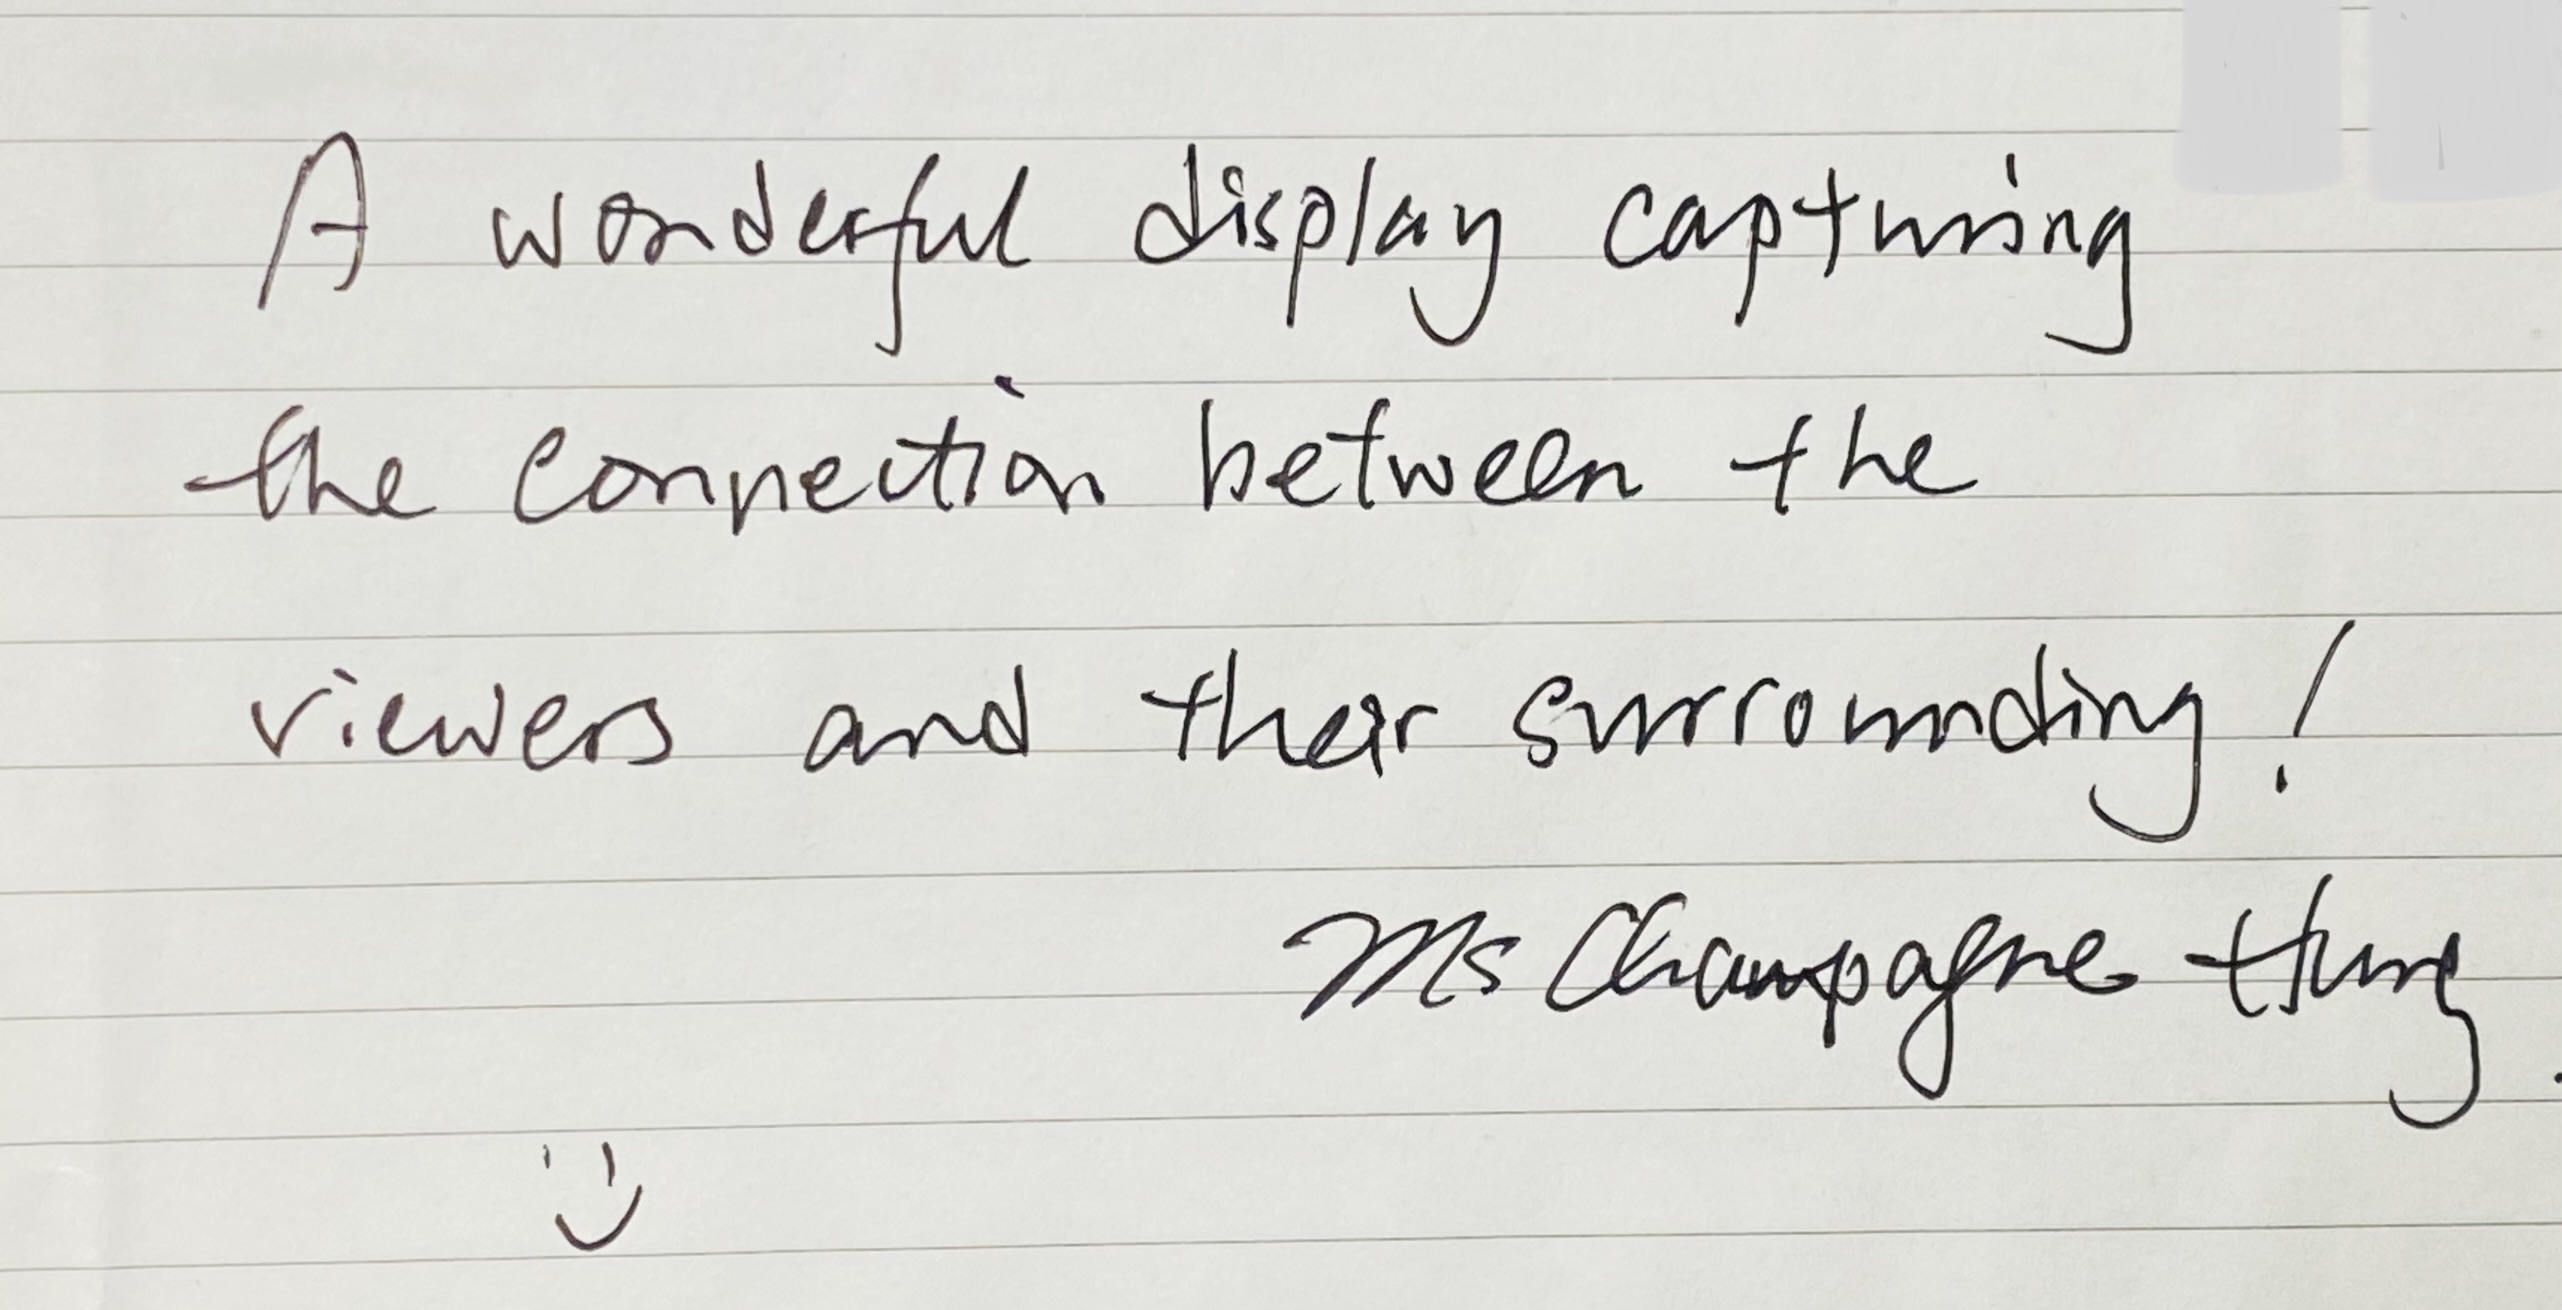 A wonderful display capturing
the connection between the
viewers and their surrounding!
Ms Champagne Hung